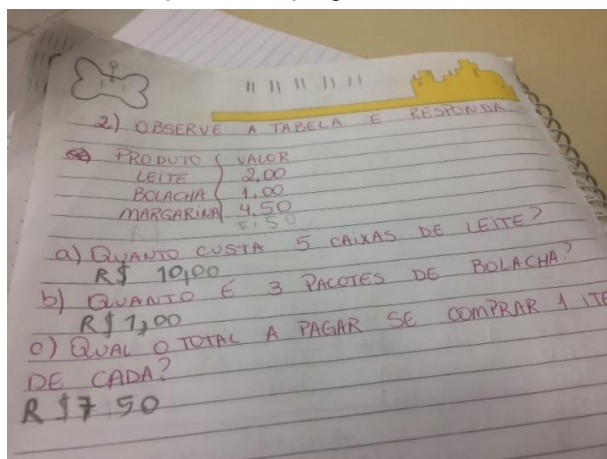 2) OBSERVE A TABELA E RESPONDA
PRODUTO VALOR
LEITE 2,00
BOLACHA 1,00
MARGARINA 4,50
a) QUANTO CUSTA 5 CAIXAS DE LEITE?
R$ 10,00
b) QUANTO É 3 PACOTES DE BOLACHA?
R$ 1,00
c) QUAL O TOTAL A PAGAR SE COMPRAR 1 ITE
DE CADA?
R $7 50